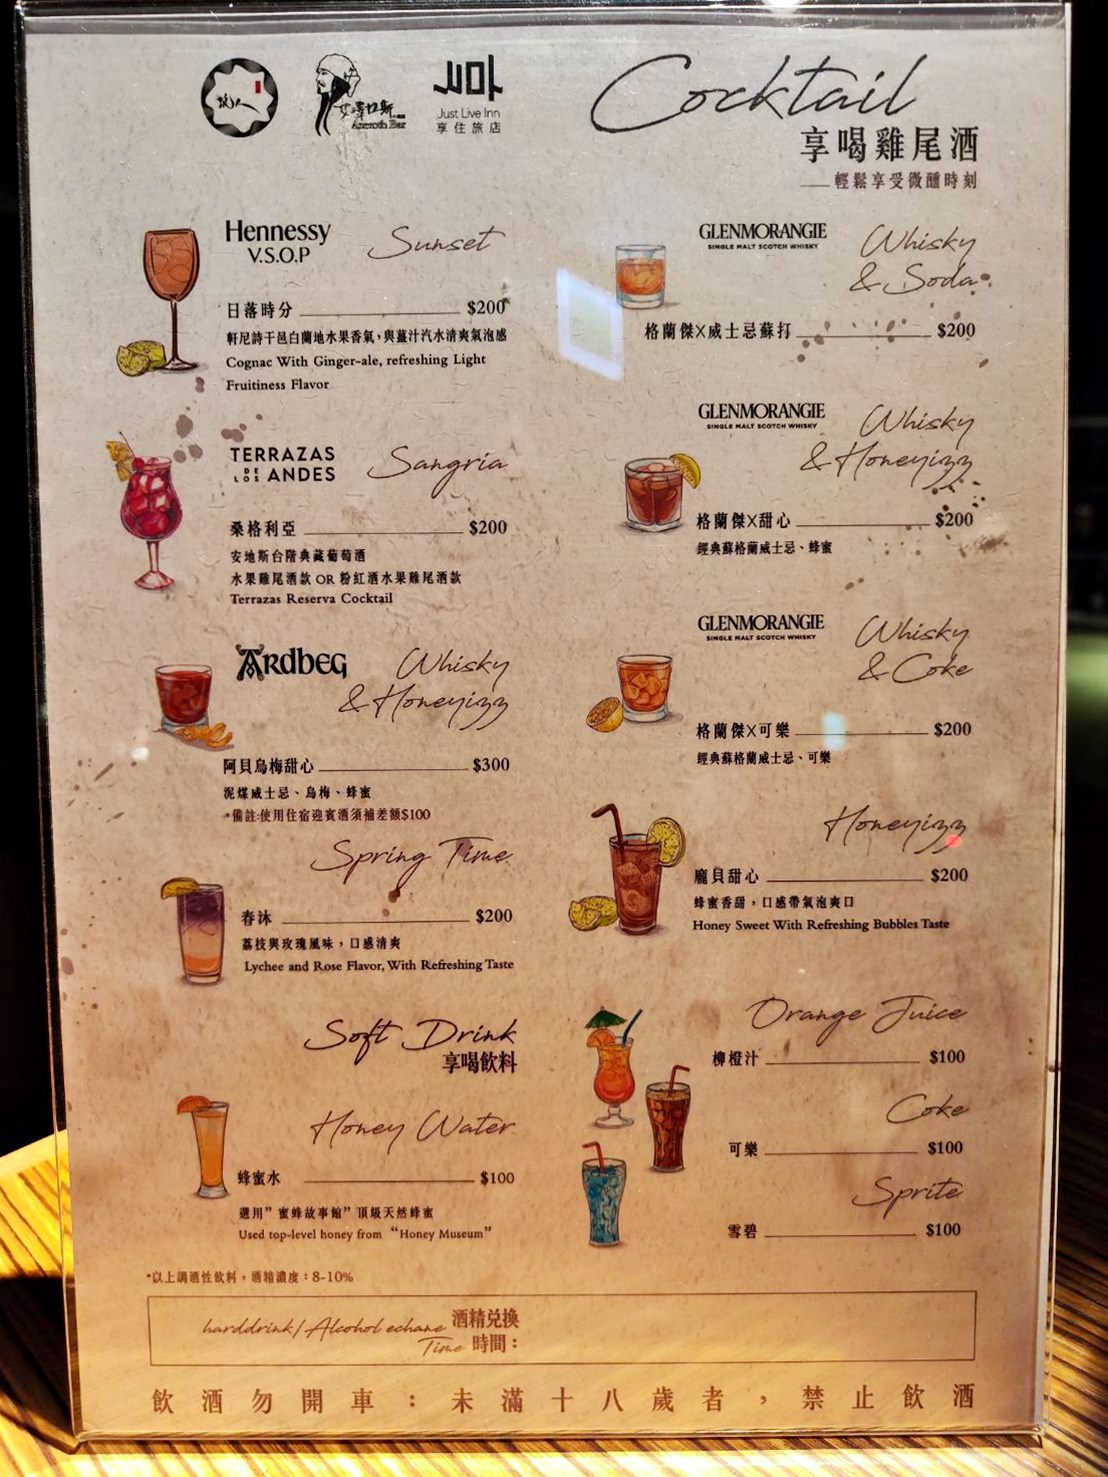 牧人
艾澤拉斯
Azeroth Bar
Just Live Inn
享住旅店
Cocktail
享喝雞尾酒
輕鬆享受微醺時刻
Hennessy
V.S.O.P
Sunset
日落時分 $200
軒尼詩干邑白蘭地水果香氣，與薑汁汽水清爽氣泡感
Cognac With Ginger-ale, refreshing Light
Fruitiness Flavor
TERRAZAS
DE LOS ANDES
Sangria
桑格利亞 $200
安地斯台階典藏葡萄酒
水果雞尾酒款 OR 粉紅酒水果雞尾酒款
Terrazas Reserva Cocktail
ARdbeG
Whisky
& Honeyizz
阿貝烏梅甜心 $300
泥煤威士忌、烏梅、蜂蜜
*備註:使用住宿迎賓酒須補差額$100
Spring Time
春沐 $200
荔枝與玫瑰風味，口感清爽
Lychee and Rose Flavor, With Refreshing Taste
GLENMORANGIE
SINGLE MALT SCOTCH WHISKY
Whisky
& Soda
格蘭傑X威士忌蘇打 $200
GLENMORANGIE
SINGLE MALT SCOTCH WHISKY
Whisky
& Honeyizz
格蘭傑X甜心 $200
經典蘇格蘭威士忌、蜂蜜
GLENMORANGIE
SINGLE MALT SCOTCH WHISKY
Whisky
& Coke
格蘭傑X可樂 $200
經典蘇格蘭威士忌、可樂
Honeyizz
龐貝甜心 $200
蜂蜜香甜，口感帶氣泡爽口
Honey Sweet With Refreshing Bubbles Taste
Soft Drink
享喝飲料
Honey Water
蜂蜜水 $100
選用”蜜蜂故事館”頂級天然蜂蜜
Used top-level honey from “Honey Museum”
Orange Juice
柳橙汁 $100
Coke
可樂 $100
Sprite
雪碧 $100
*以上調酒性飲料，酒精濃度：8-10%
harddrink/Alcohol echane 酒精兌換
Time 時間：
飲酒勿開車：未滿十八歲者，禁止飲酒